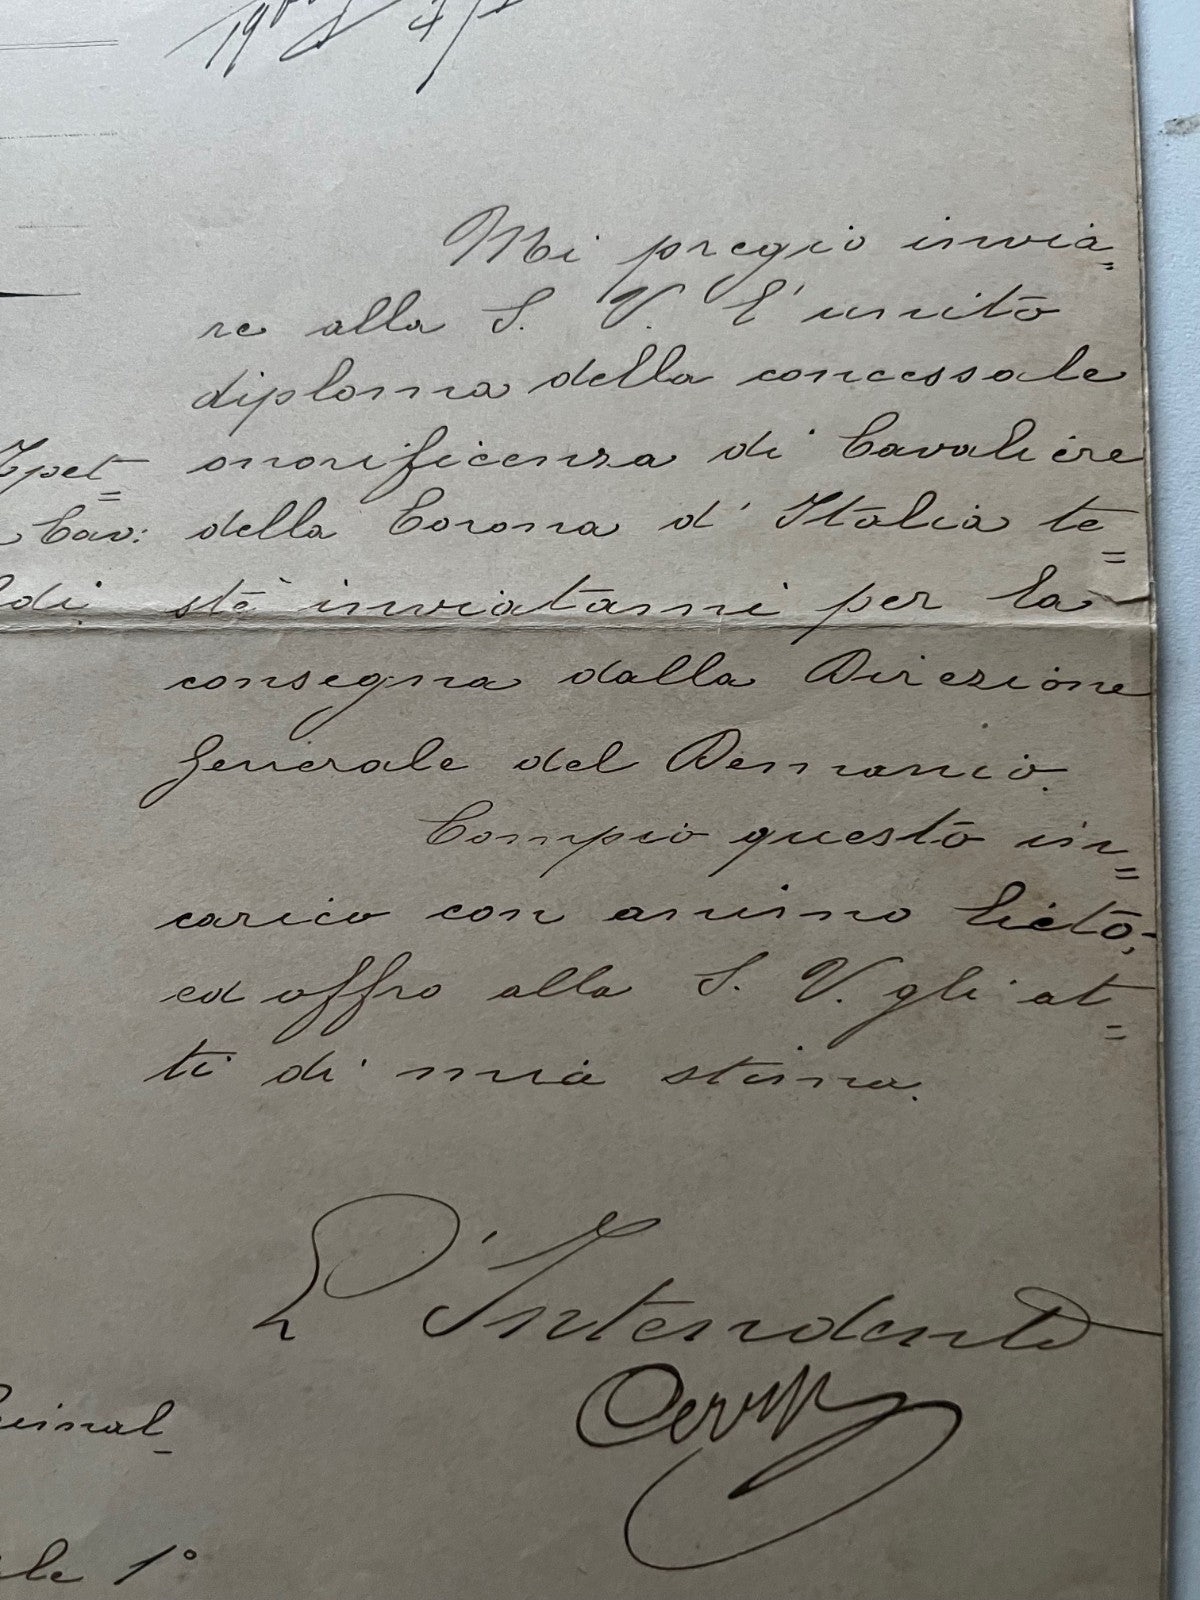 Mi pregio invia=
re alla S. V. l'unito
diploma della concessale
Ispet= onorificenza di Cavaliere
Cav: della Corona d'Italia te=
ldi stè inviatami per la
consegna dalla Direzione
Generale del Demanio.
Compio questo in=
carico con animo lieto,
ed offro alla S. V. gli at=
ti di mia stima.
L'Intendente
le 1°